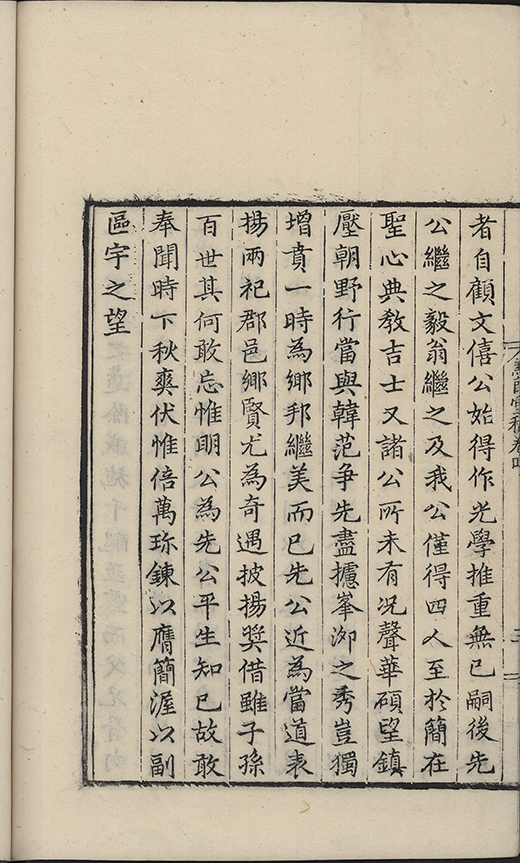 者自顧文僖公始得作光學推重無已嗣後先
公繼之毅翁繼之及我公僅得四人至於簡在
聖心典教吉士又諸公所未有況聲華碩望鎮
壓朝野行當與韓范争先盡攄峯泖之秀豈獨
增賁一時為鄉邦繼美而已先公近為當道表
揚兩祀郡邑鄉賢尤為奇遇披揚奨借雖子孫
百世其何敢忘惟明公為先公平生知已故敢
奉聞時下秋爽伏惟倍萬珎錬以膺簡渥以副
區宇之望